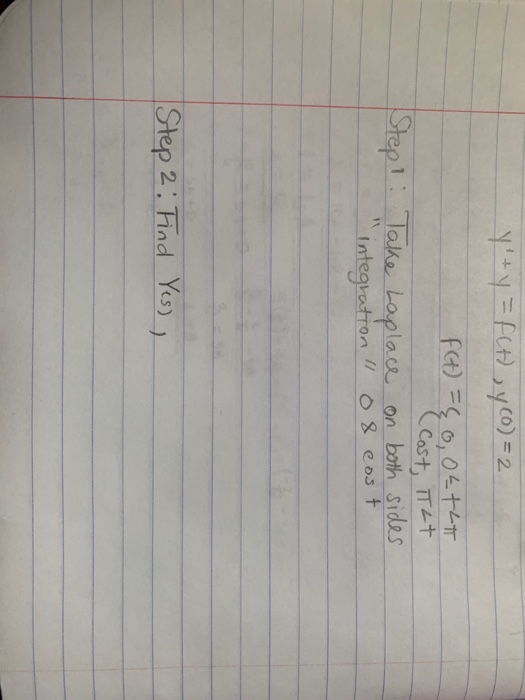 y' + y = f(t), y(0) = 2
f(t) = { 0, 0 < t < π
( cost, π < t
Step 1: Take Laplace on both sides
"integration" 0 & cost
Step 2: Find Y(s),